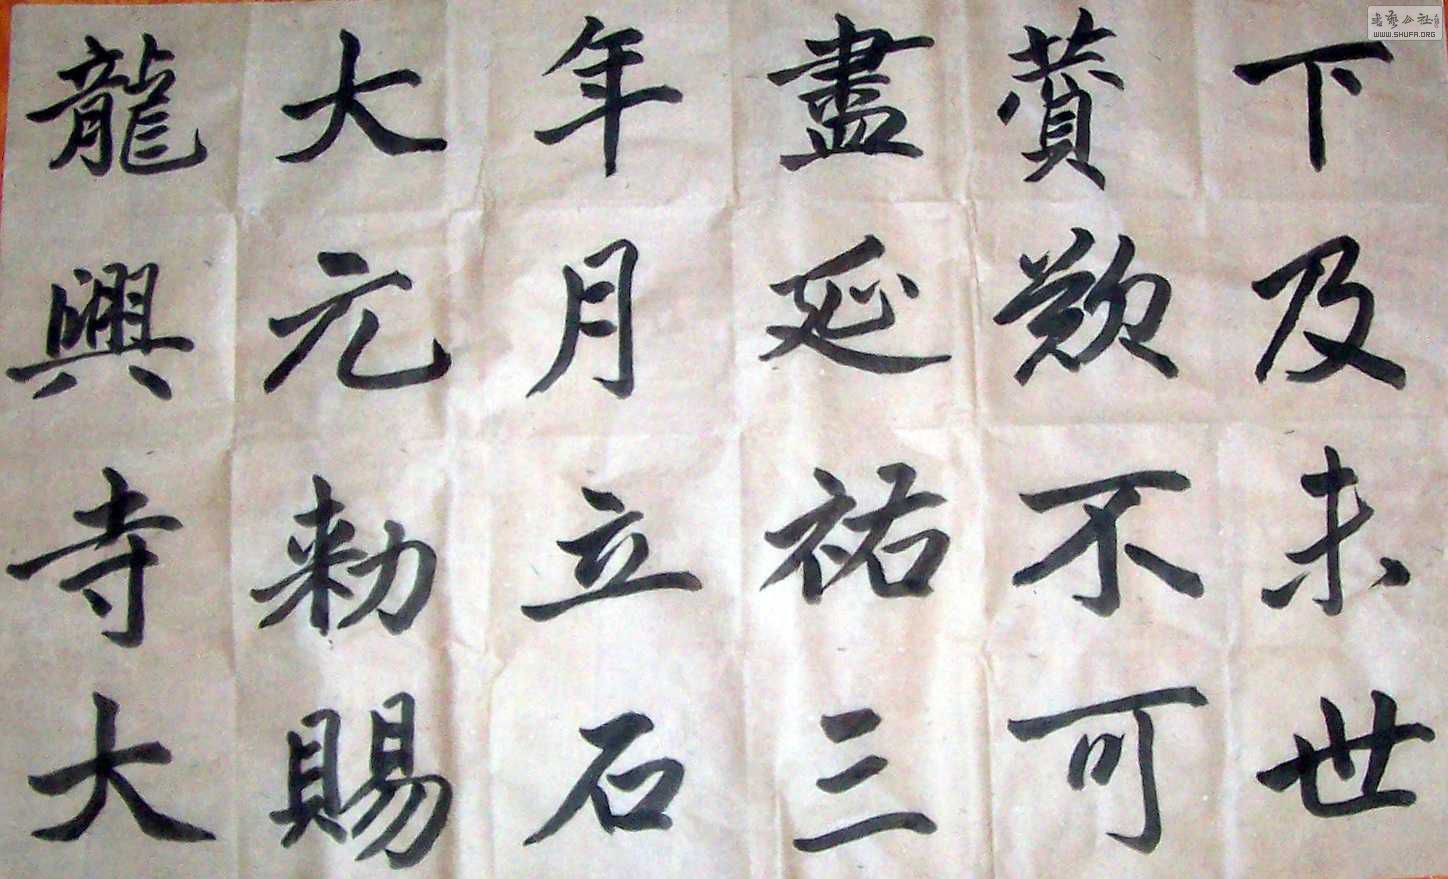 下及未世
賛歎不可
盡延祐三
年月立石
大元勑賜
龍興寺大
WWW.SHUFA.ORG